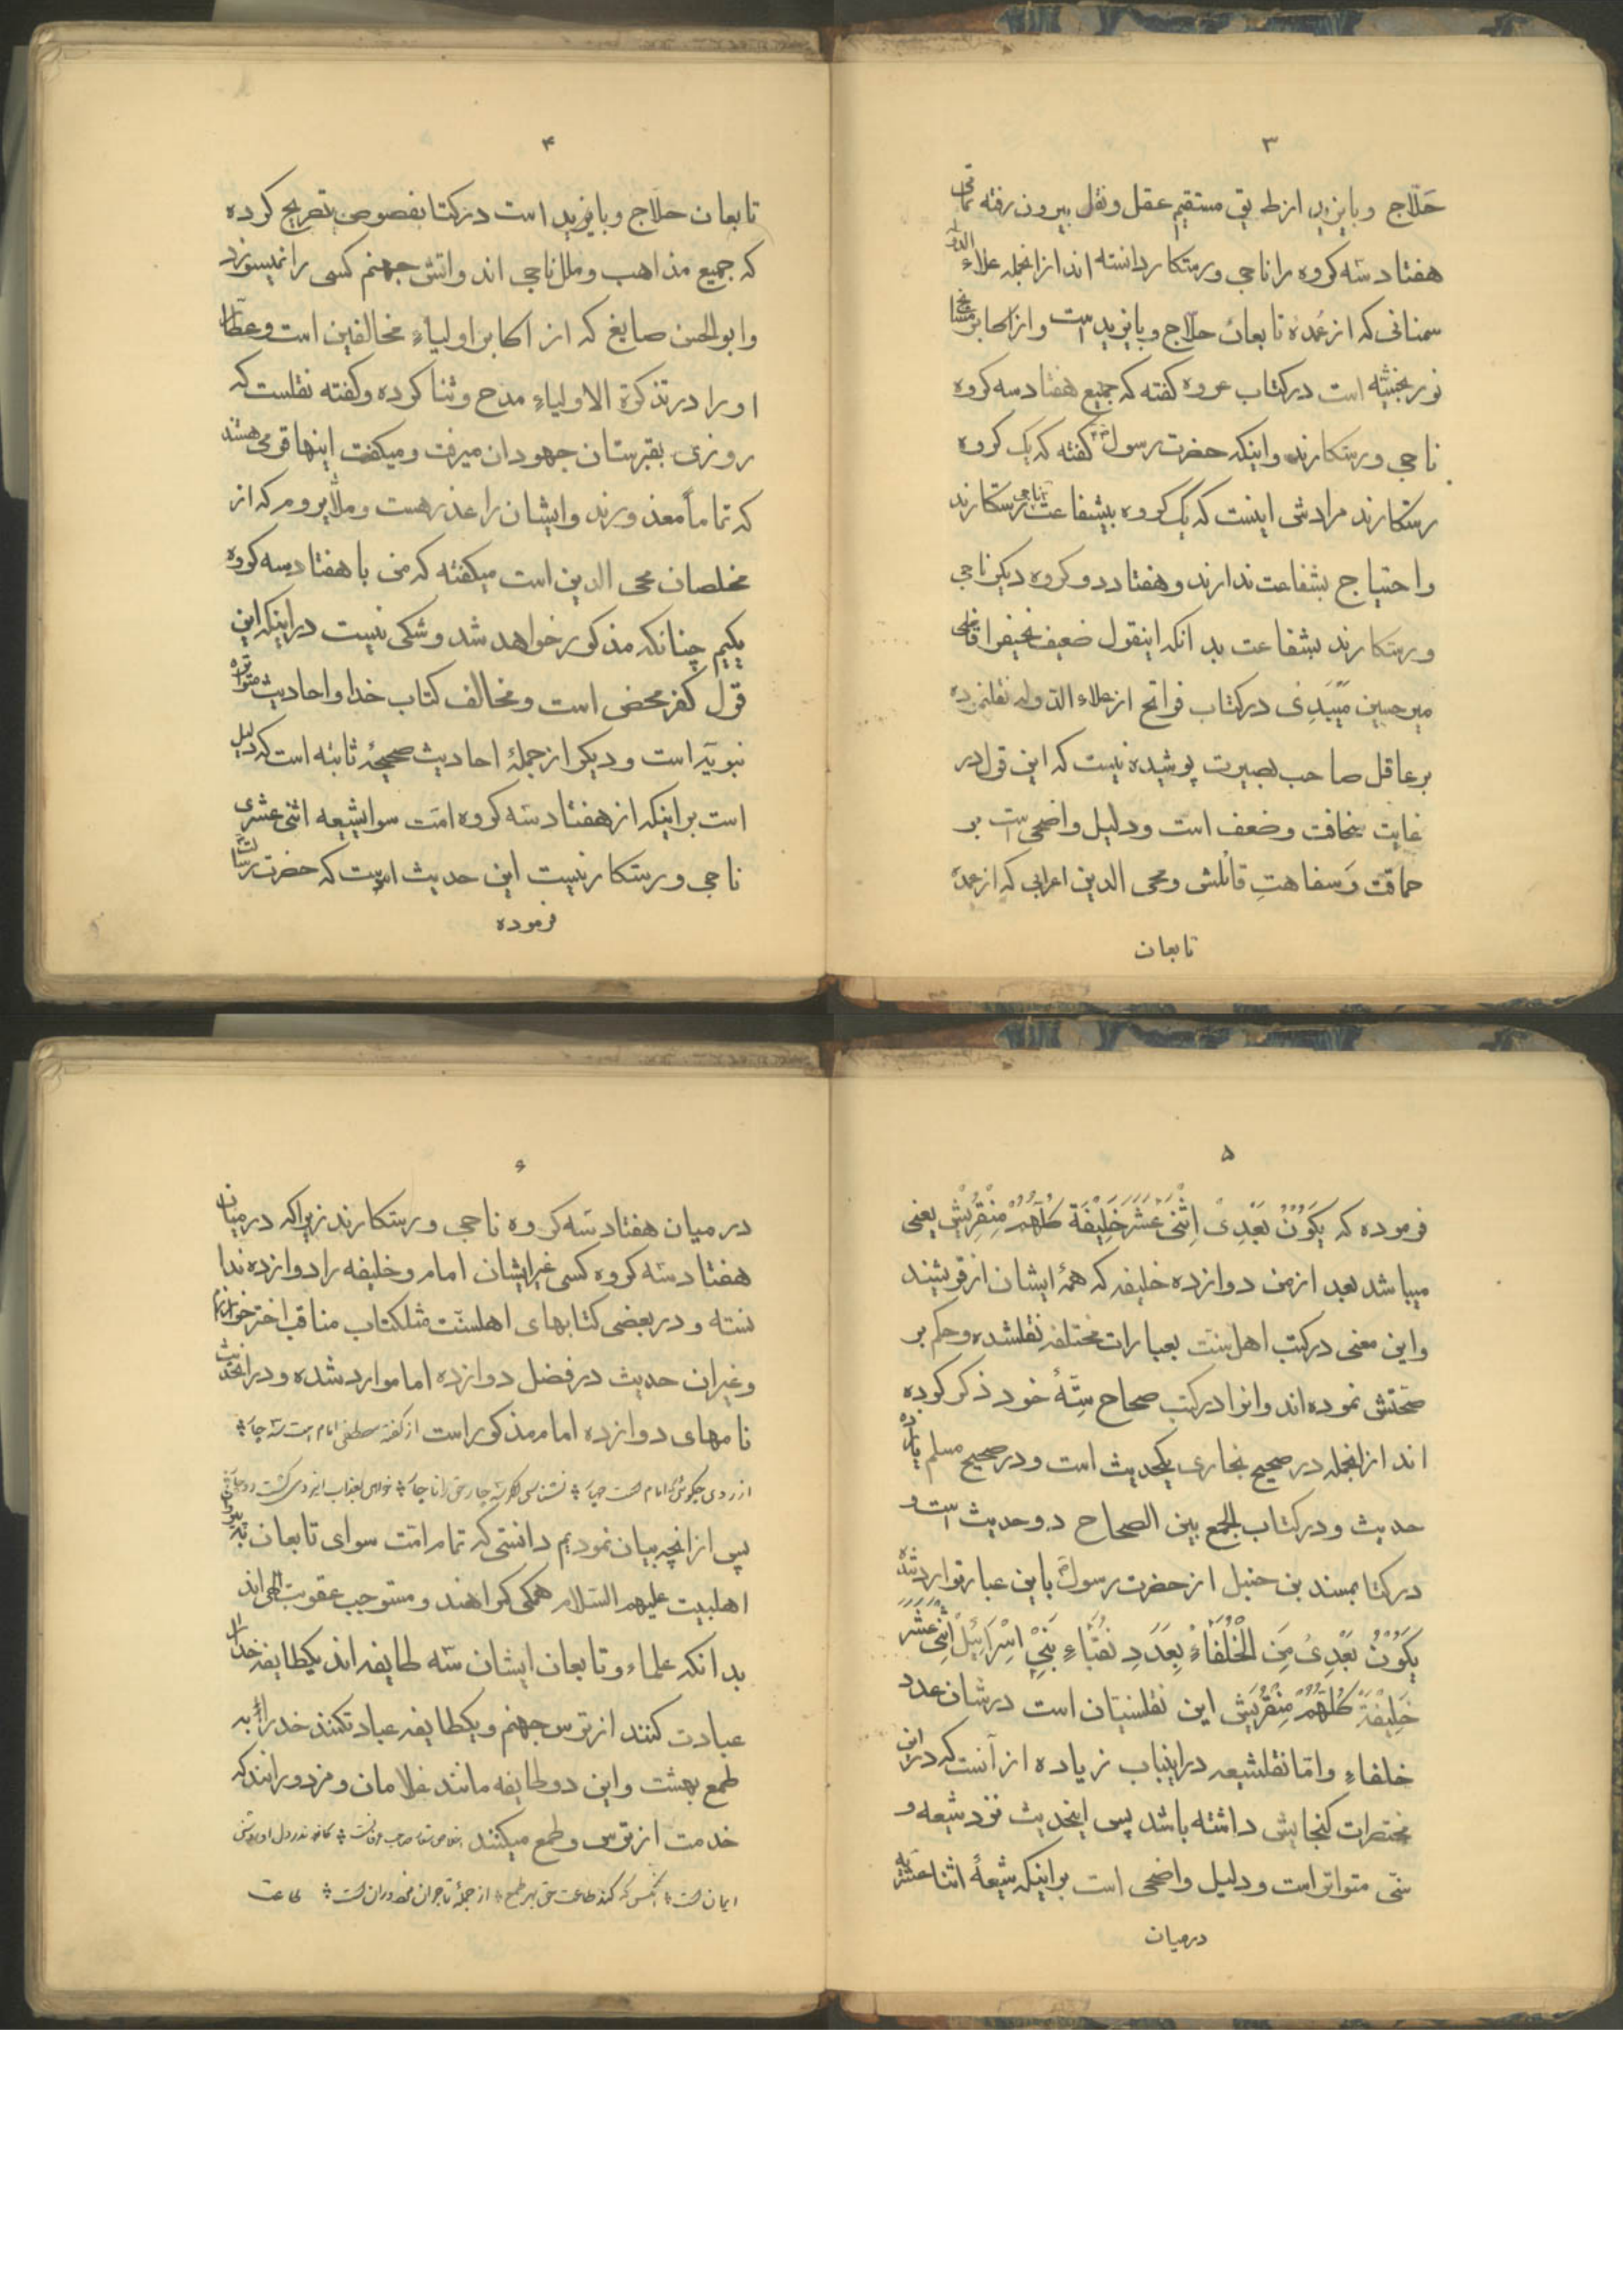 ۳
حَلّاج و بایزید از طریق مستقیم عقل و نقل بیرون رفته تمامی
هفتاد سّه کروه را ناجی و رستکار دانسته اند از انجمله علاء الدوله
سمنانی که از عُمدهٔ تابعان حلّاج و بایزید است و از اکابر مشایخ
نوربخشیّه است در کتاب عروه کفته که جمیع هفتاد سه کروه
ناجی و رستکارند و اینکه حضرت رسول ص کفته که یک کروه
رستکارند مرادش اینست که یک کروه بیشفاعت ناجی و رستکارند
و احتیاج بشفاعت ندارند و هفتاد دو کروه دیکر ناجی
و رستکارند بشفاعت بدانکه اینقول ضعیف نحیفرا قاضی
میر حسین میّبَدِی در کتاب فواتح از علاء الدوله نقلنموده
بر عاقل صاحب بصیرت پوشیده نیست که این قول در
غایت سخافت و ضعف است و دلیل واضحی است بر
حماقت وَ سفاهتِ قائلش و محی الدین اعرابی که از عمدهٔ
تابعان
۴
تابعان حلاج و بایزید است در کتابفصوص بتصریح کرده
که جمیع مذاهب و ملل ناجی اند و اتش جهنم کسی را نمیسوزد
و ابو الحسن صایغ که از اکابر اولیاءِ مخالفین است و عطّار
او را در تذکرة الاولیاءِ مدح و ثنا کرده و کفته نقلست که
روزی بقبرستان جهودان میرفت و میکفت اینها قومی هستند
که تماماً معذورند و ایشان را عذر هست و ملّای روم که از
مخلصان محی الدین است میکفته که من با هفتاد سه کروه
یکیم چنانکه مذکور خواهد شد و شکی نیست در اینکه این
قول کفر محض است و مخالف کتاب خدا و احادیث متواتره
نبویّه است و دیکر از جملهٔ احادیث صحیحهٔ ثابته است که دلیل
است بر اینکه از هفتاد سّه کروه امّت سوا یشیعه اثنی عشری
ناجی و رستکار نیست این حدیث است که حضرت رسالت
فرموده
۵
فرموده که یَکُونُ بَعْدِیْ اِثْنیٰ عَشَرَ خَلِیْفَة کُلّهُمْ مِنْقُریْش یعنی
میباشد بعد از من دوازده خلیفه که همهٔ ایشان از قریشند
و این معنی در کتب اهل سنّت بعبارات مختلفه نقلشده و حکم بر
صحّتش نموده اند و انرا در کتب صحاح ستّهٔ خود ذکر کرده
اند از انجمله در صحیح بخاری یکحدیث است و در صحیح مسلم یازده
حدیث و در کتاب الجمع بین الصحاح دو حدیث است و
در کتابمسند بن حنبل از حضرت رسول ص باین عبارتوارد شده
یَکُوْنُ بَعْدِیْ مِنَ الْخُلَفَاءُ بِعَدَدِ نُقَبَاءِ بَنِیْ اِسْرَائِیْلَ اثْنیٰ عَشَرَ
خَلِیْفَةً کُلّهُمْ مِنْقُرَیْش این نقلسنیّان است در شان عدد
خلفاءِ و امّا نقلشیعه در اینباب زیاده از آنست که در این
مختصرات کنجایش داشته باشد پس اینحدیث نزد شیعه و
سنّی متواتر است و دلیل واضحی است بر اینکه شیعهٔ اثنا عشریه
درمیان
۶
در میان هفتاد سّه کروه ناجی و رستکارند زیراکه در میان
هفتاد سّه کروه کسی غیر ایشان امام و خلیفه را دوازده ندا
نسته و در بعضی کتابهای اهلسنّت مثلکتاب مناقب اخترخوارزم
و غیر ان حدیث در فضل دوازده امام وارد شده و در انحدیث
نامهای دوازده امام مذکور است از کفتهٔ مصطفی امام است سّه چار
از روی چه کوئی که امام است چهار نشناسی اکر سّه چار حق را ناچار خواهی بعذاب ایزدی کشت دوچار
پس از انچه بیان نمودیم دانستی که تمام امّت سوای تابعان
اهلبیت علیهم السّلام همکی کمراهند و مستوجب عقوبت الهی اند
بدانکه علماء و تابعان ایشان سّه طایفه اند یکطایفه خدا را
عبادت کنند از ترس جهنم و یکطایفه عبادتکنند خدا را به
طمع بهشت و این دو طایفه مانند غلامان و مزدورانند که
خدمت از ترس و طمع میکنند
ایمان است انکس که کند طاعت حق بهر طمع از جملهٔ تاجران مزدوران است طاعت